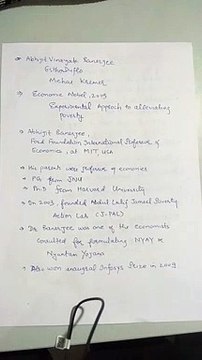 → Abhijit Vinayak Banerjee
Esther Duflo
Michael Kremer
→ Economic Nobel, 2019
Experimental Approach to alleviating
poverty
→ Abhijit Banerjee,
Ford Foundation International Professor of
Economics, at MIT, USA
→ His parent were professor of economics
→ PG from JNU
→ Ph.D from Harvard University
→ In 2003, founded Abdul Latif Jameel Poverty
Action Lab (J-PAL)
→ Dr Banerjee was one of the economists
consulted for formulating NYAY or
Nyuntam Yojana
→ Also won inaugural Infosys Prize in 2009